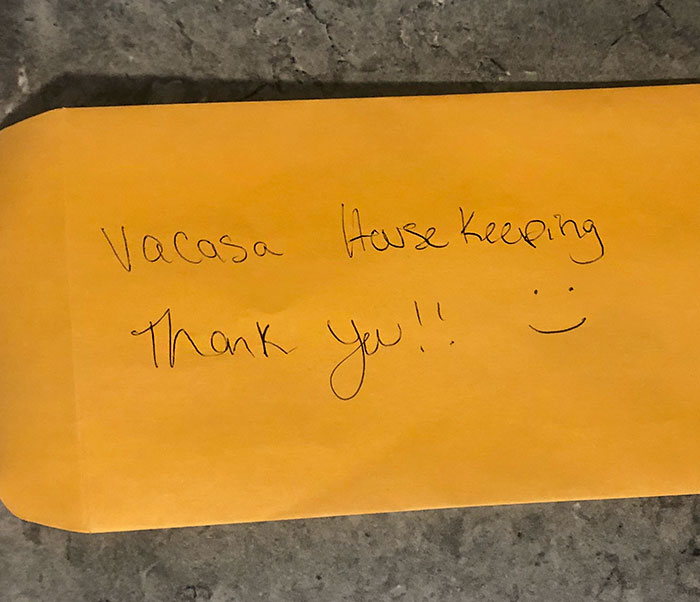 Vacasa House Keeping
Thank You!! :)